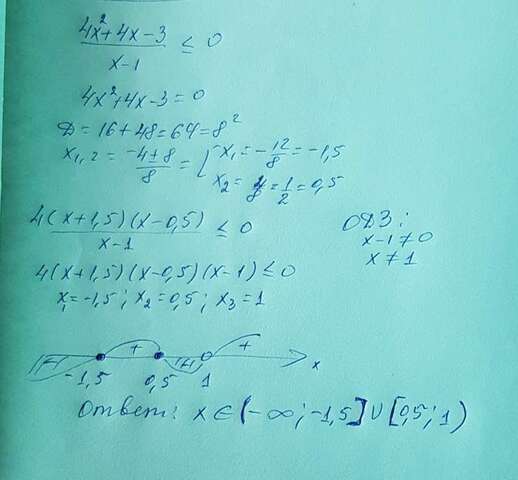 4x²+4x-3 / x-1 ≤ 0
4x²+4x-3=0
D=16+48=64=8²
x₁,₂ = -4±8 / 8 = { x₁=-12/8=-1,5
x₂=4/8=1/2=0,5
4(x+1,5)(x-0,5) / x-1 ≤ 0
ОДЗ:
x-1≠0
x≠1
4(x+1,5)(x-0,5)(x-1)≤0
x₁=-1,5; x₂=0,5; x₃=1
- + - + x
-1,5 0,5 1
Ответ: x∈(-∞;-1,5]∪[0,5;1)